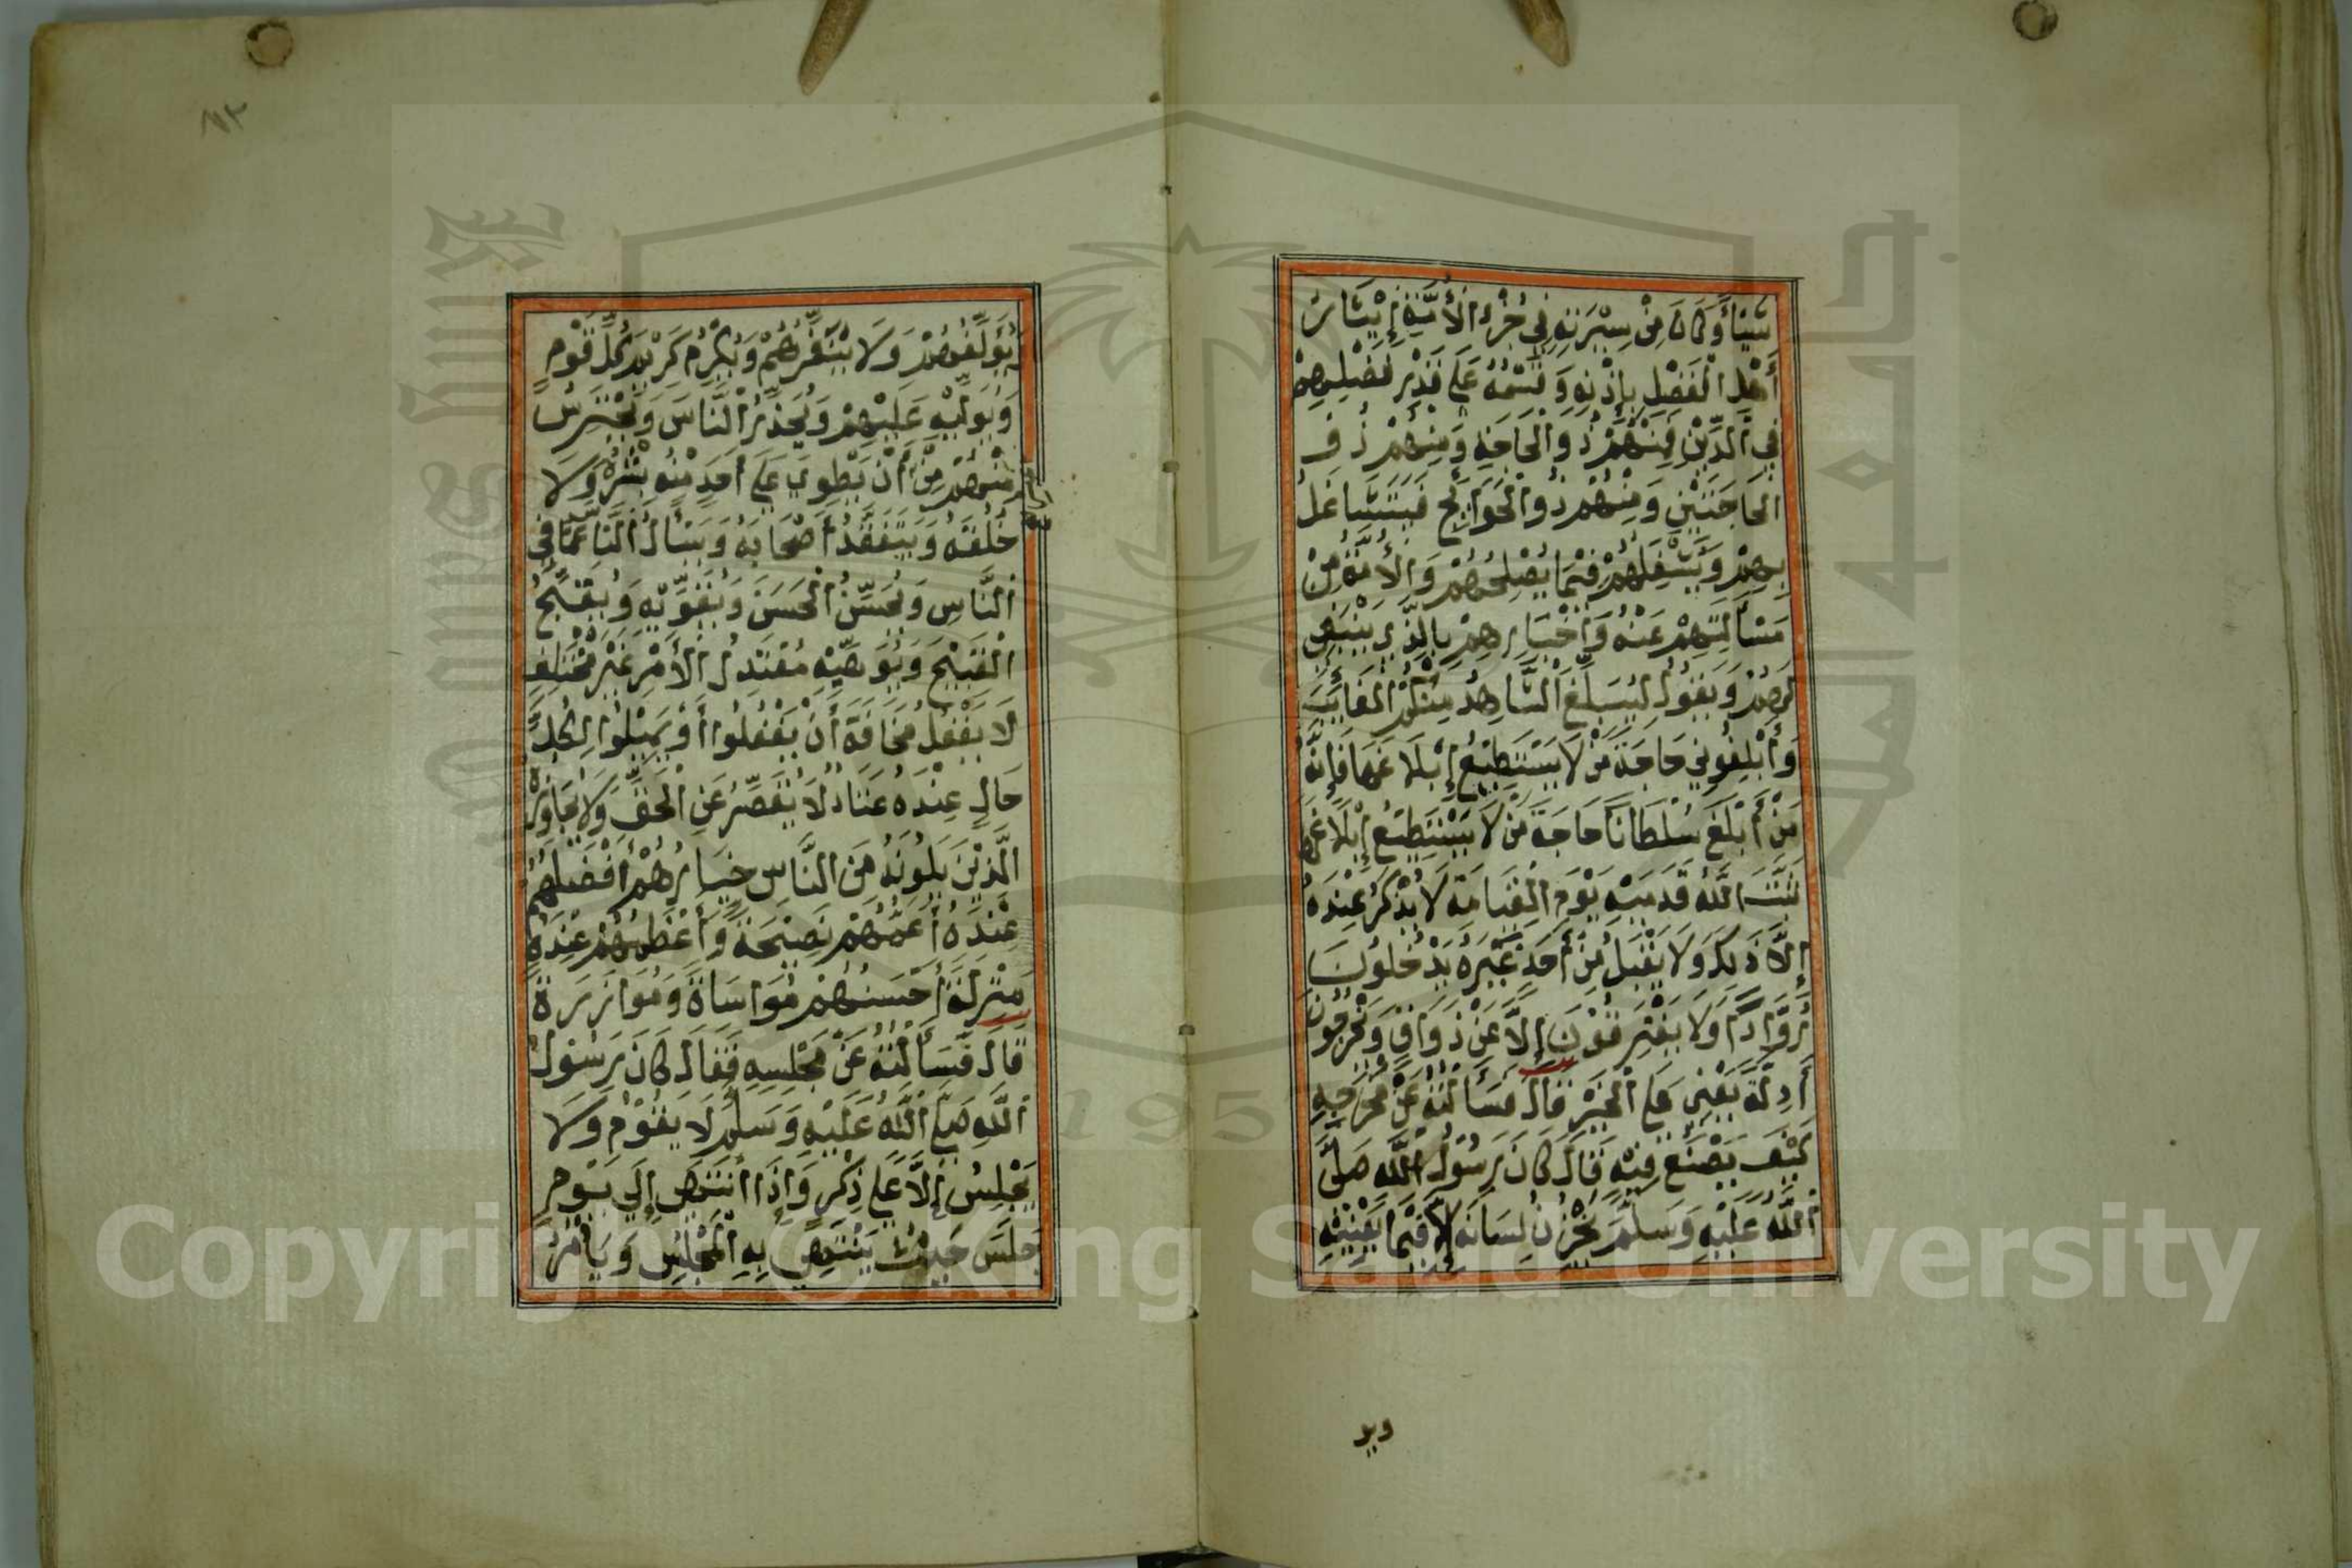 شَيْئًا وَكَانَ مِنْ سِيْرَتِهِ فِي جُزْءِ الْأُمَّةِ إِيْثَارُ
أَهْلِ الْفَضْلِ بِإِذْنِهِ وَقَسْمُهُ عَلَى قَدْرِ فَضْلِهِمْ
فِي الدِّيْنِ فَمِنْهُمْ ذُو الْحَاجَةِ وَمِنْهُمْ ذُو
الْحَاجَتَيْنِ وَمِنْهُمْ ذُو الْحَوَائِجِ فَيَتَشَاغَلُ
بِهِمْ وَيَشْغَلُهُمْ فِيْمَا يُصْلِحُهُمْ وَالْأُمَّةَ مِنْ
مَسْأَلَتِهِمْ عَنْهُ وَإِخْبَارِهِمْ بِالَّذِي يَنْبَغِي
لَهُمْ وَيَقُوْلُ لِيُبَلِّغِ الشَّاهِدُ مِنْكُمُ الْغَائِبَ
وَأَبْلِغُوْنِي حَاجَةَ مَنْ لَا يَسْتَطِيْعُ إِبْلَاغَهَا فَإِنَّهُ
مَنْ أَبْلَغَ سُلْطَانًا حَاجَةَ مَنْ لَا يَسْتَطِيْعُ إِبْلَاغَهَا
ثَبَّتَ اللَّهُ قَدَمَيْهِ يَوْمَ الْقِيَامَةِ لَا يُذْكَرُ عِنْدَهُ
إِلَّا ذَلِكَ وَلَا يَقْبَلُ مِنْ أَحَدٍ غَيْرَهُ يَدْخُلُوْنَ
رُوَّادًا وَلَا يَفْتَرِقُوْنَ إِلَّا عَنْ ذَوَاقٍ وَيَخْرُجُوْنَ
أَدِلَّةً يَعْنِي عَلَى الْخَيْرِ قَالَ فَسَأَلْتُهُ عَنْ مَخْرَجِهِ
كَيْفَ يَصْنَعُ فِيْهِ قَالَ كَانَ رَسُوْلُ اللَّهِ صَلَّى
اللَّهُ عَلَيْهِ وَسَلَّمَ يَخْزُنُ لِسَانَهُ إِلَّا فِيْمَا يَعْنِيْهِ
ويو
يُؤَلِّفُهُمْ وَلَا يُنَفِّرُهُمْ وَيُكْرِمُ كَرِيْمَ كُلِّ قَوْمٍ
وَيُوَلِّيْهِ عَلَيْهِمْ وَيُحَذِّرُ النَّاسَ وَيَحْتَرِسُ
مِنْهُمْ مِنْ أَنْ يَطْوِيَ عَلَى أَحَدٍ مِنْهُ بِشْرَهُ وَلَا
خُلُقَهُ وَيَتَفَقَّدُ أَصْحَابَهُ وَيَسْأَلُ النَّاسَ عَمَّا فِي
النَّاسِ وَيُحَسِّنُ الْحَسَنَ وَيُقَوِّيْهِ وَيُقَبِّحُ
الْقَبِيْحَ وَيُوَهِّيْهِ مُعْتَدِلُ الْأَمْرِ غَيْرُ مُخْتَلِفٍ
لَا يَغْفُلُ مَخَافَةَ أَنْ يَغْفُلُوا أَوْ يَمِيْلُوا لِكُلِّ
حَالٍ عِنْدَهُ عَتَادٌ لَا يُقَصِّرُ عَنِ الْحَقِّ وَلَا يُجَاوِزُهُ
الَّذِيْنَ يَلُوْنَهُ مِنَ النَّاسِ خِيَارُهُمْ أَفْضَلُهُمْ
عِنْدَهُ أَعَمُّهُمْ نَصِيْحَةً وَأَعْظَمُهُمْ عِنْدَهُ
مَنْزِلَةً أَحْسَنُهُمْ مُوَاسَاةً وَمُوَازَرَةً
قَالَ فَسَأَلْتُهُ عَنْ مَجْلِسِهِ فَقَالَ كَانَ رَسُوْلُ
اللَّهِ صَلَّى اللَّهُ عَلَيْهِ وَسَلَّمَ لَا يَقُوْمُ وَلَا
يَجْلِسُ إِلَّا عَلَى ذِكْرٍ وَإِذَا انْتَهَى إِلَى قَوْمٍ
جَلَسَ حَيْثُ يَنْتَهِي بِهِ الْمَجْلِسُ وَيَأْمُرُ
Copyright © King Saud University
1957